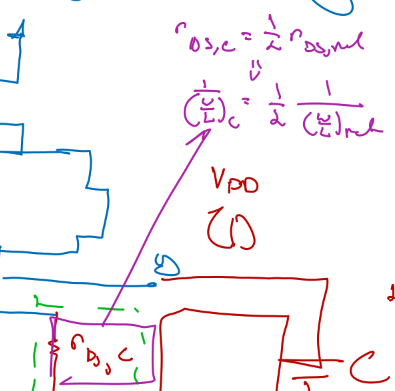 r_DS,c = 1/2 r_DS,red
⇓
1/(W/L)_c = 1/2 1/(W/L)_red
VDD
r_DS, c
C